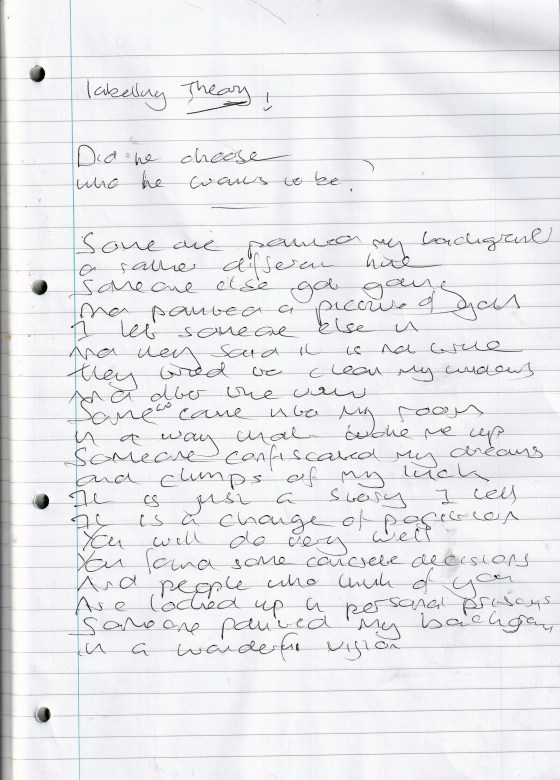 labelling Theory!
Did he choose
who he wants to be?
Someone painted my background
a rather different hue
Someone else got going
And painted a picture of you
I let someone else in
And they said it is not true
they tried to clean my windows
And the view
Someone came into my room
in a way that woke me up
Someone confiscated my dreams
and clumps of my luck
It is just a story I tell
It is a change of position
You will do very well
You found some concrete decisions
And people who think of you
Are locked up in personal prisons
Someone painted my
in a wonderful vision